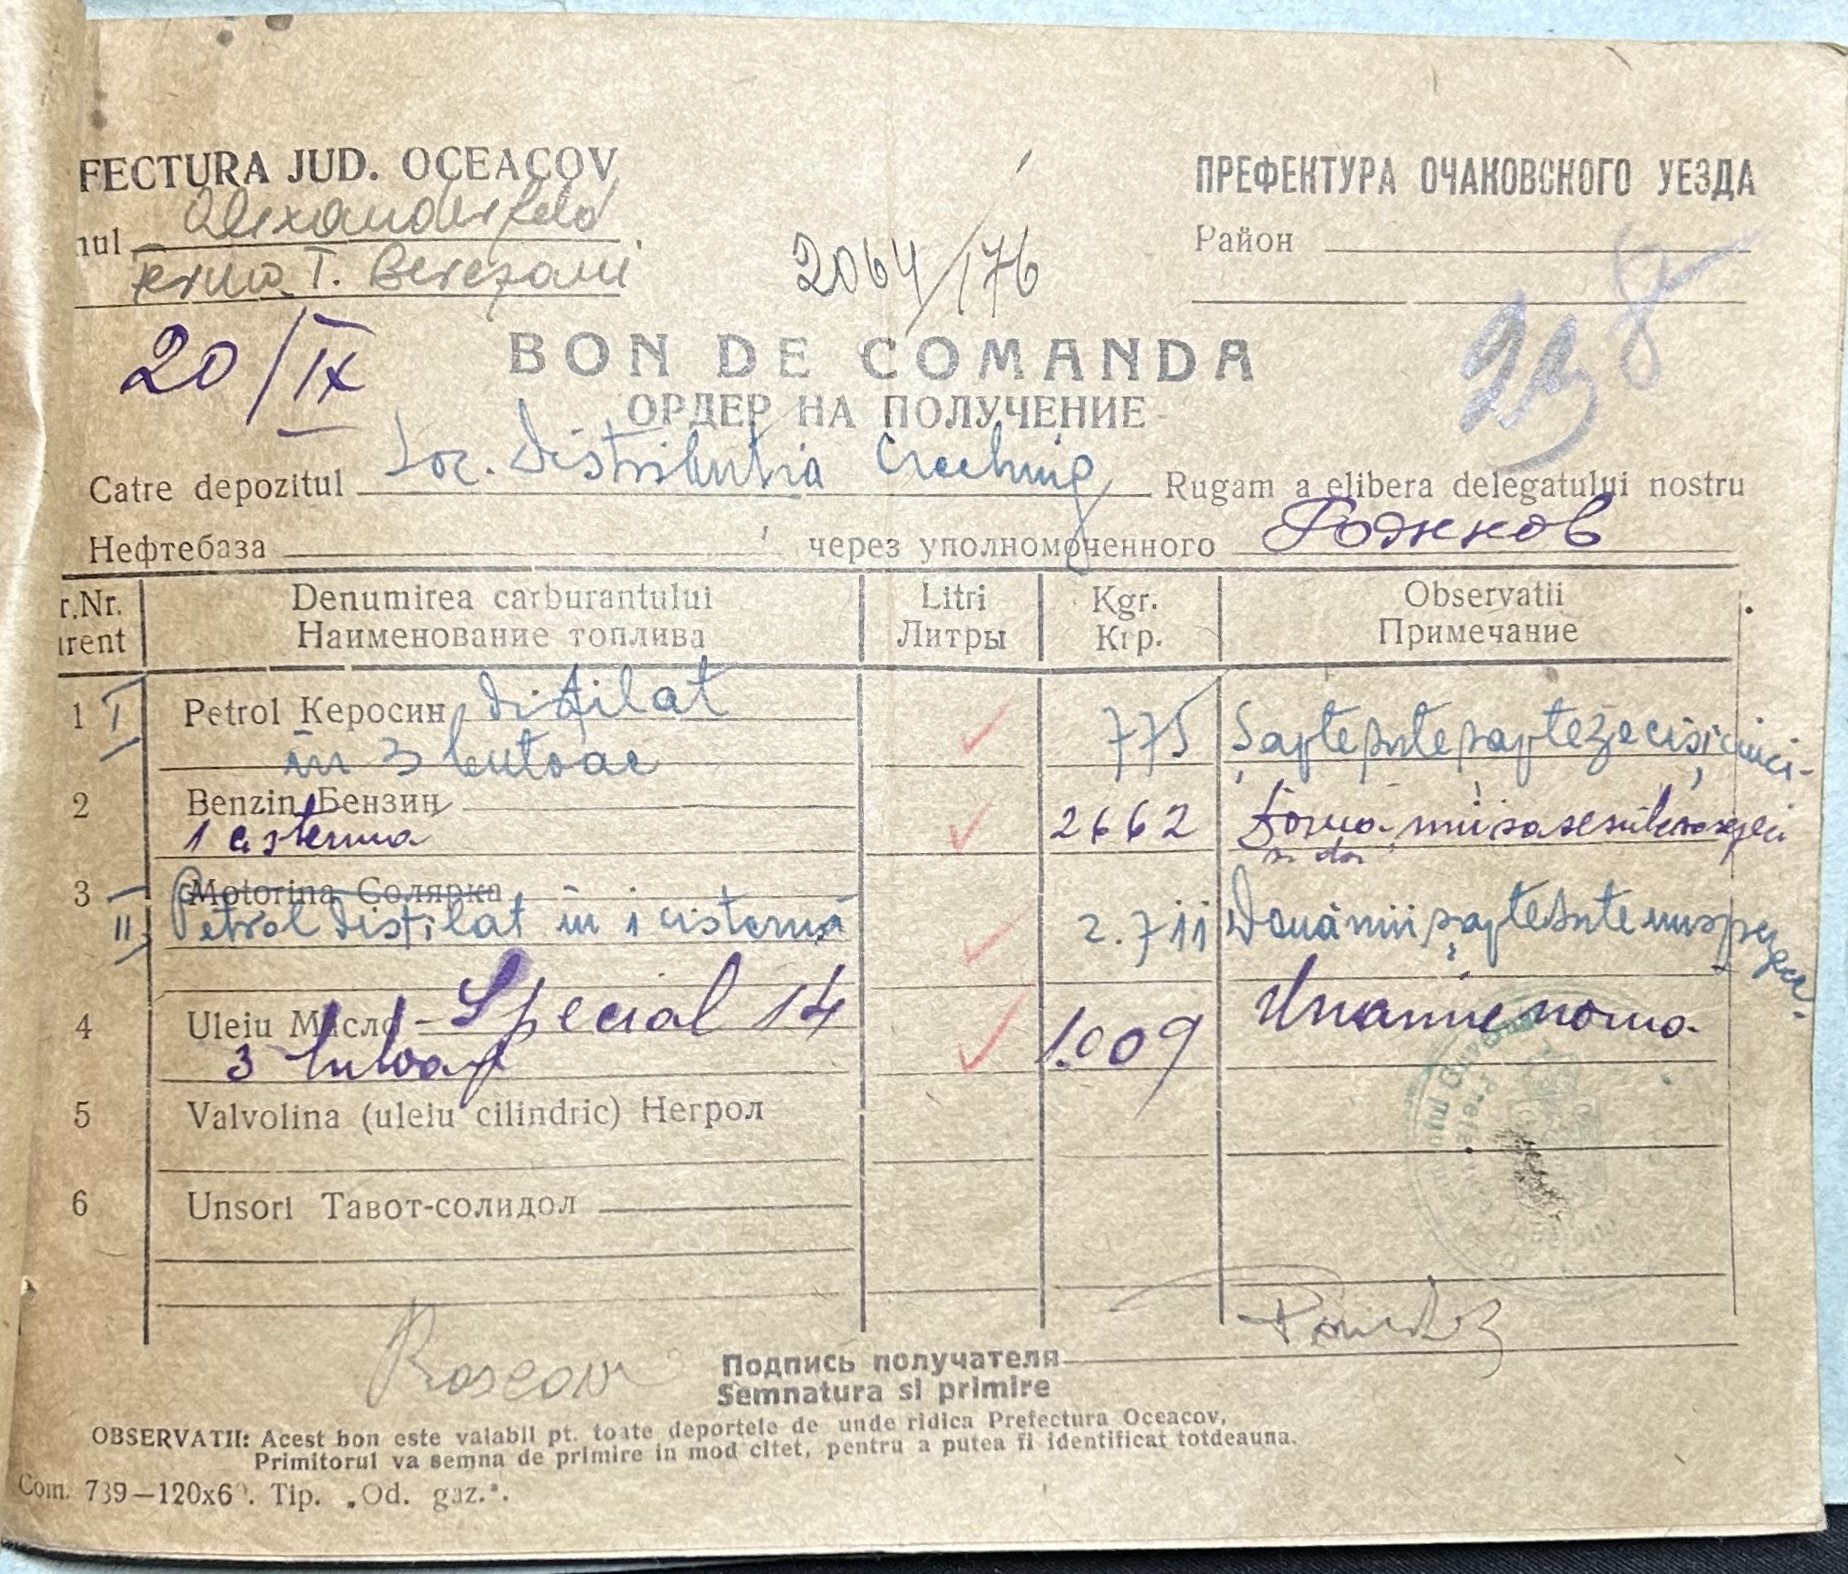 FECTURA JUD. OCEACOV
ПРЕФЕКТУРА ОЧАКОВСКОГО УЕЗДА
nul Alexanderfeld
Район
T. Berezani
2064/176
20/IX
BON DE COMANDA
ОРДЕР НА ПОЛУЧЕНИЕ
Catre depozitul Distributia Rugam a elibera delegatului nostru
Нефтебаза через уполномоченного Рожков
r.Nr. Denumirea carburantului Litri Kgr. Observatii
rent Наименование топлива Литры Кгр. Примечание
1 I Petrol Керосин distilat 775 Șaptesuteșaptezecișicinci-
în 3 butoae
2 Benzin Бензин 2662
1 cisterna si doi
3 Motorina Солярка
II Petrol distilat in 1 cisternă 2.711 Douămiișaptesuteunsprezece-
4 Uleiu Масло - Special 14 1.009 Unamienoua-
3 butoae
5 Valvolina (uleiu cilindric) Негрол
6 Unsori Тавот-солидол
Roscov
Подпись получателя
Semnatura si primire
OBSERVATII: Acest bon este valabil pt. toate deportele de unde ridica Prefectura Oceacov,
Primitorul va semna de primire in mod citet, pentru a putea fi identificat totdeauna.
Com. 739—120x6 . Tip. „Od. gaz.".